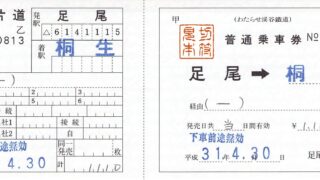 片道
乙
0813
発駅
足尾
△6141115
着駅
桐生
(一)
社1
接続
社2
下車前途無効
4.30
同一発売
枚
計
1.1.1.0
甲
(わたらせ渓谷鐵道)
普通乗車券 №
足尾 ➡ 桐
経由(一)
発売日共 当 日間有効
¥1.1.
下車前途無効
平成 31年4.30
足尾